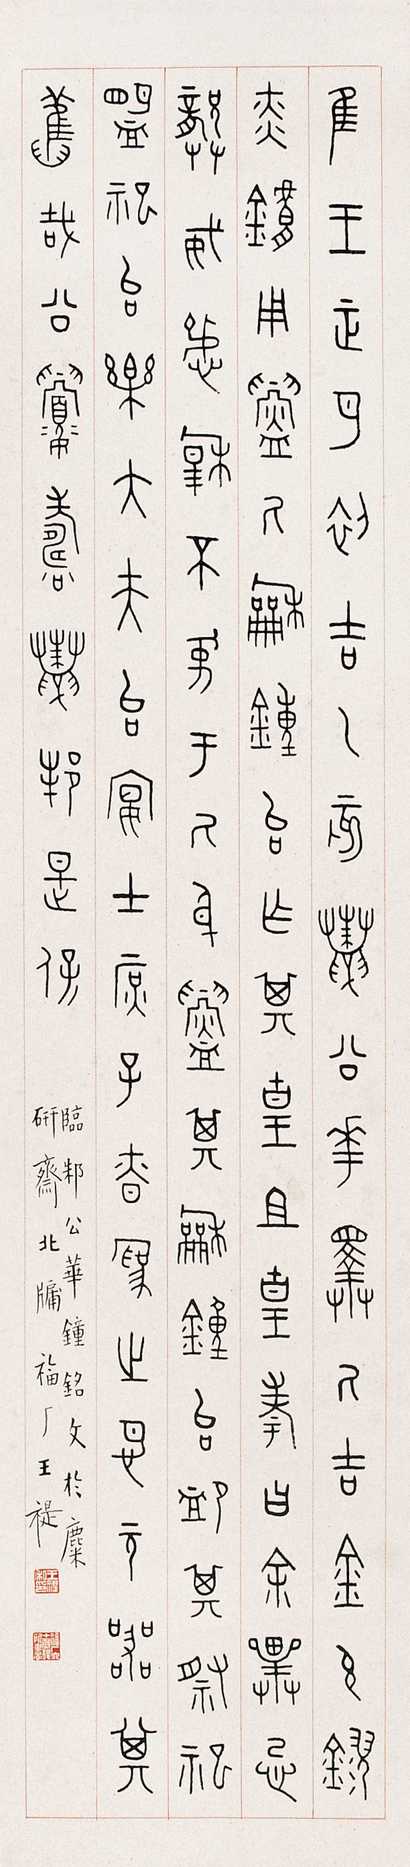 隹王正月初吉乙亥鼄公華擇氒吉金玄鏐
赤鏞用鑄氒龢鐘台乍其皇且皇考曰余畢
龏威穆不于氒身鑄其龢鐘台卹其祭祀
盟祀台樂大夫台宴士庶子昚為之名元器其
舊哉公眉壽鼄邦是保
臨邾公華鐘銘文於麋
研齋北牖福厂王禔